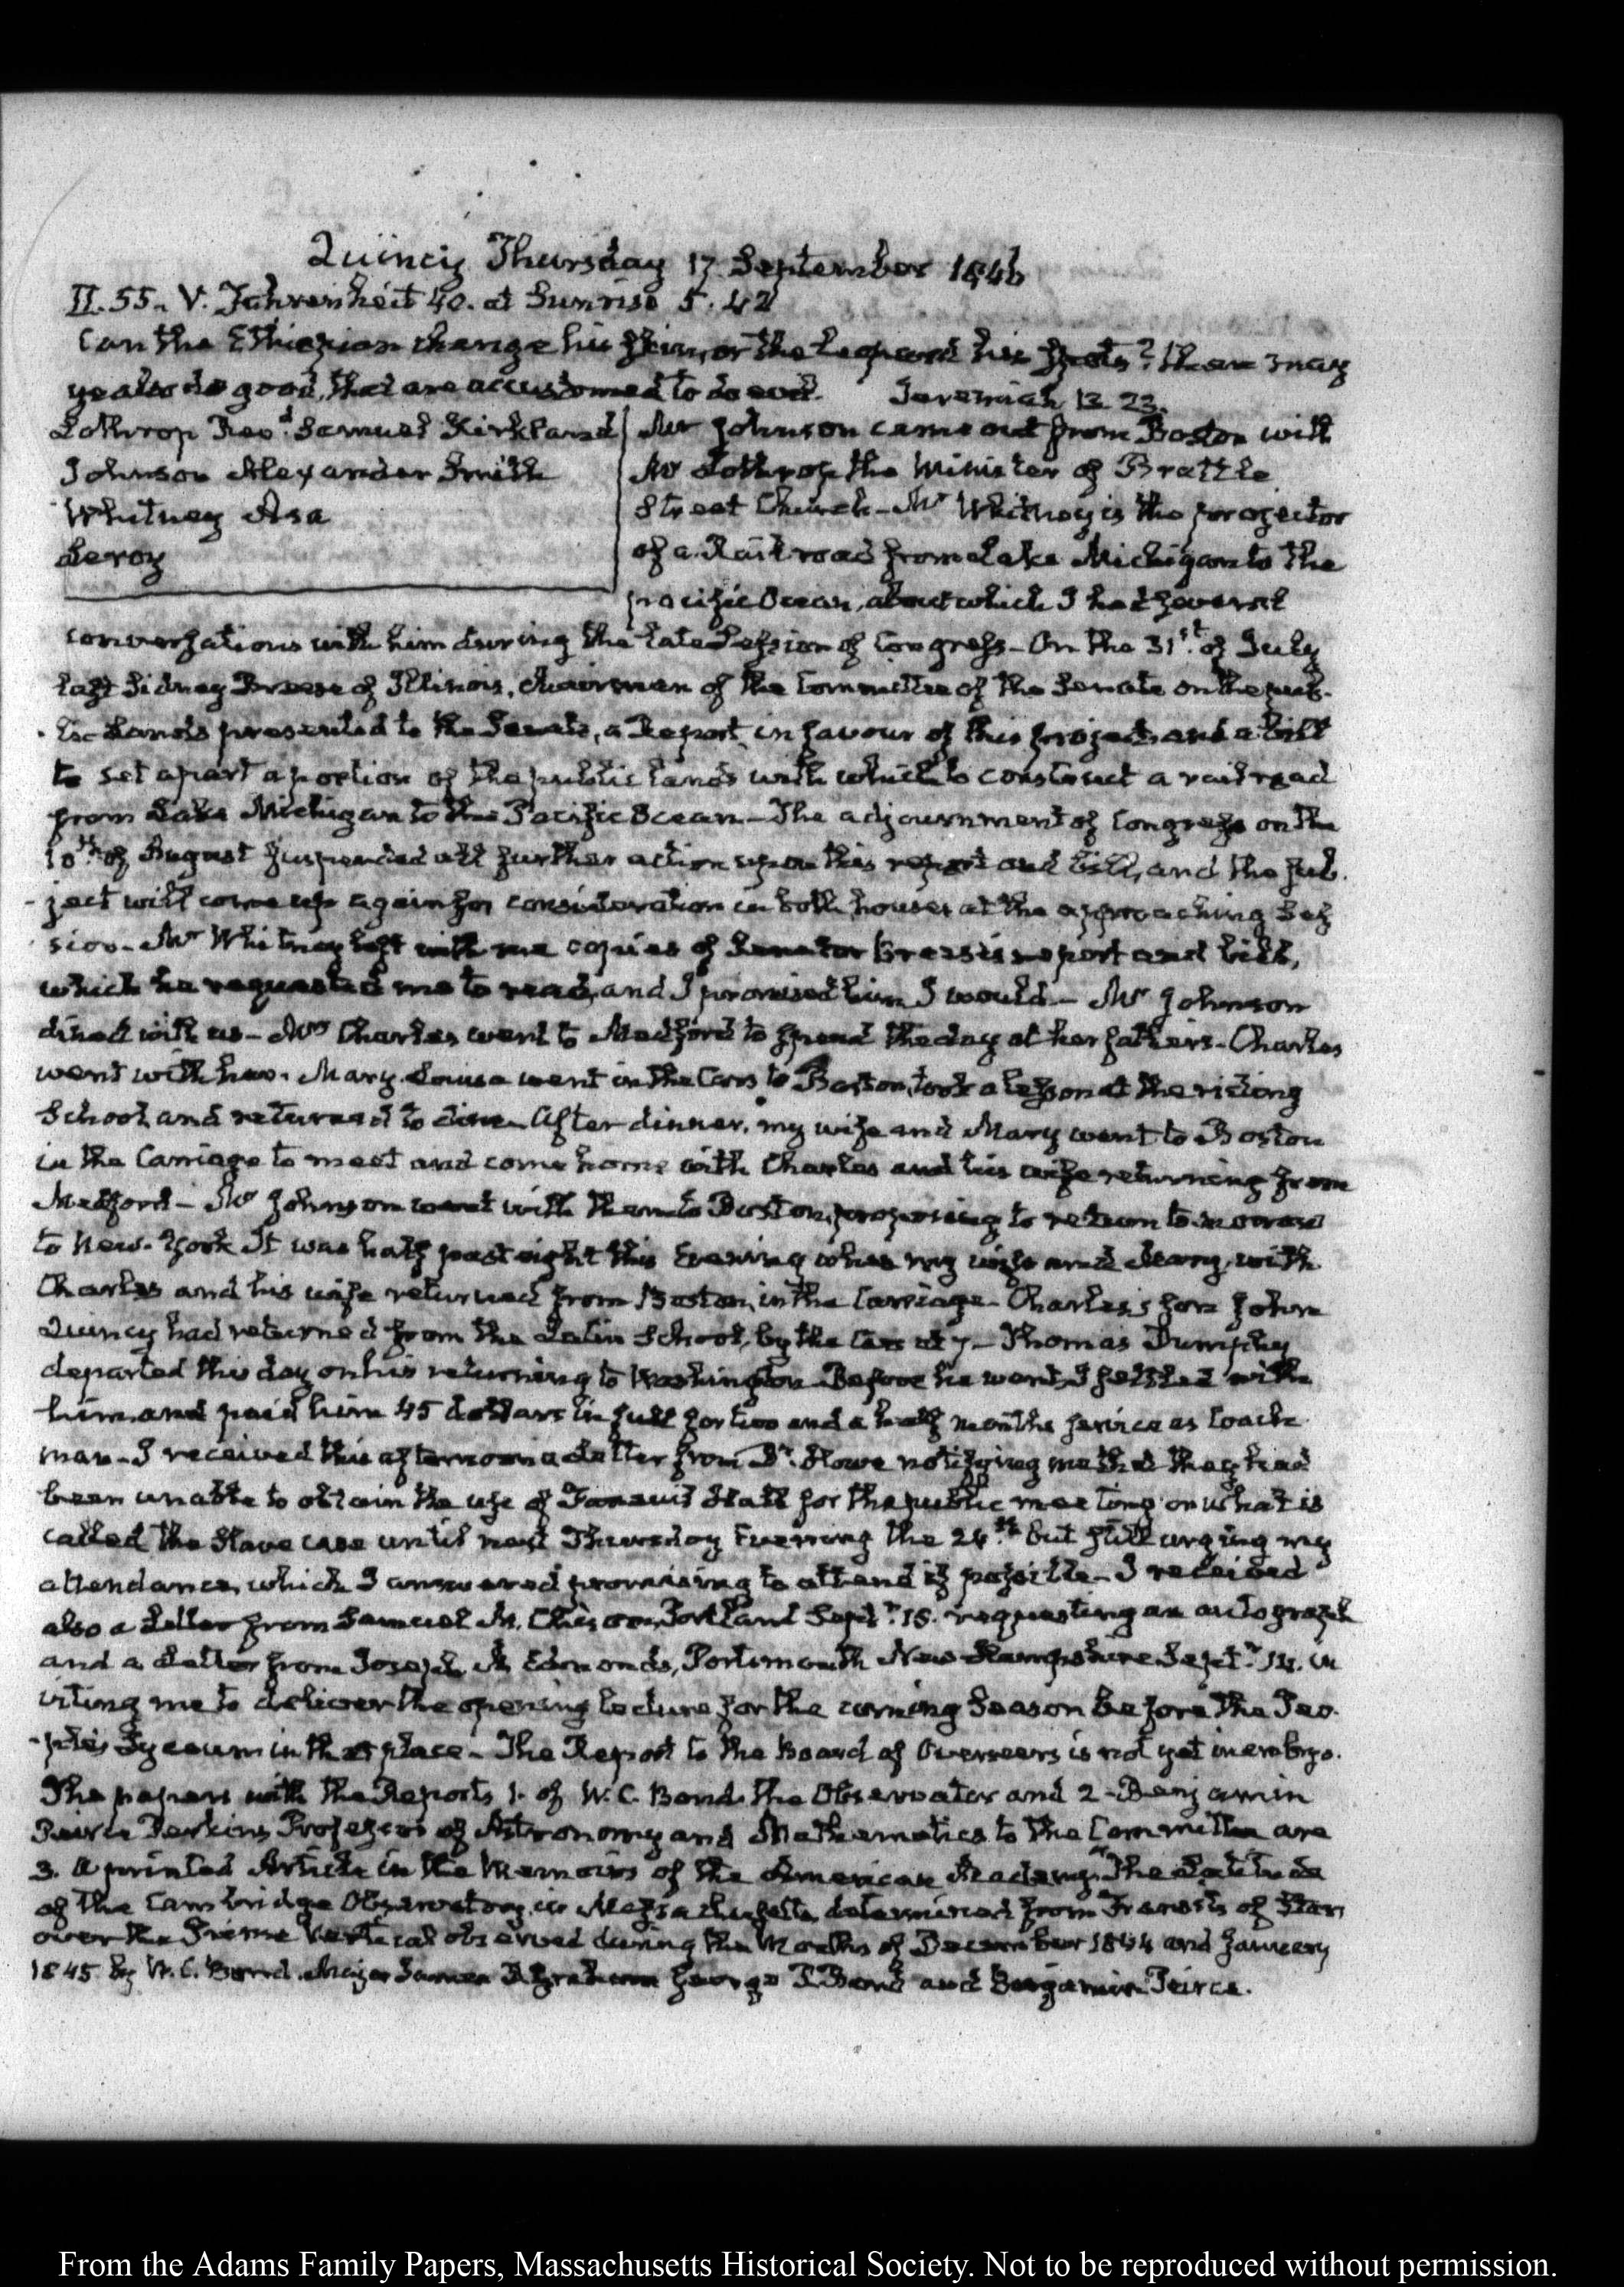 Quincy Thursday 17 September 1846
II. 55. V. Fahrenheit 40. at Sunrise 5.42
Can the Ethiopian change his skin, or the Leopard his spots? then may
ye also do good, that are accustomed to do evil. Jeremiah 13 23.
Lothrop Revd. Samuel Kirkland
Johnson Alexander Smith
Whitney Asa
Leroy
Mr Johnson came out from Boston with
Mr Lothrop the Minister of Brattle
Street Church - Mr Whitney is the projector
of a Railroad from Lake Michigan to the
pacific Ocean, about which I had several
conversations with him during the late Session of Congress - On the 31st. of July
last Sidney Breese of Illinois, chairman of the Committee of the Senate on the pub-
-lic Lands presented to the Senate, a Report in favour of this project, and a bill
to set apart a portion of the public lands with which to construct a railroad
from Lake Michigan to the Pacific Ocean - The adjournment of Congress on the
10th. of August suspended all further action upon this report and bill, and the sub-
-ject will come up again for consideration in both houses at the approaching Ses
sion - Mr Whitney left with me copies of Senator Breese's report and bill,
which he requested me to read, and I promised him I would - Mr Johnson
dined with us - Mrs Charles went to Medford to spend the day at her father's - Charles
went with her. Mary Louisa went in the Cars to Boston, took a lesson at the riding
School, and returned to dine - After dinner, my wife and Mary went to Boston
in the Carriage to meet and come home with Charles and his wife returning from
Medford - Mr Johnson went with them to Boston, proposing to return tomorrow
to New-York It was half past eight this Evening when my wife and Mary, with
Charles and his wife returned from Boston, in the Carriage - Charles's son John
Quincy had returned from the Latin School, by the Cars at 7 - Thomas Dumphy
departed this day on his returning to Washington Before he went, I settled with
him, and paid him 45 dollars in full for two and a half months service as Coach
man - I received this afternoon a Letter from Dr. Howe notifying me that they had
been unable to obtain the use of Faneuil Hall for the public meeting on what is
called the Slave case until next Thursday Evening the 24th. but still urging my
attendance, which I answered promising to attend if possible - I received
also a Letter from Samuel M. Portland Septr. 15. requesting an autograph
and a Letter from Joseph M Edmonds, Portsmouth New Hampshire Septr. 14. in
viting me to deliver the opening lecture for the coming Season before the Peo-
-ple's Lyceum in that place - The Report to the Board of Overseers is not yet in embryo.
The papers with the Reports 1. of W. C. Bond, the Observator and 2 - Benjamin
Peirce Perkins Professor of Astronomy and Mathematics to the Committee are
3. a printed Article in the Memoirs of the American Academy "The Latitude
of the Cambridge Observatory, in Massachusetts, determined from Transits of Stars
over the Prime Vertical observed during the Months of December 1844 and January
1845 by W. C. Bond, Major James D. Graham George P. Bond and Benjamin Peirce.
From the Adams Family Papers, Massachusetts Historical Society. Not to be reproduced without permission.